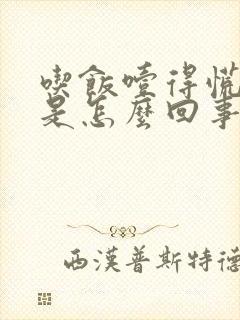 喫飯噎得慌
是怎麼回事
西漢普斯特德